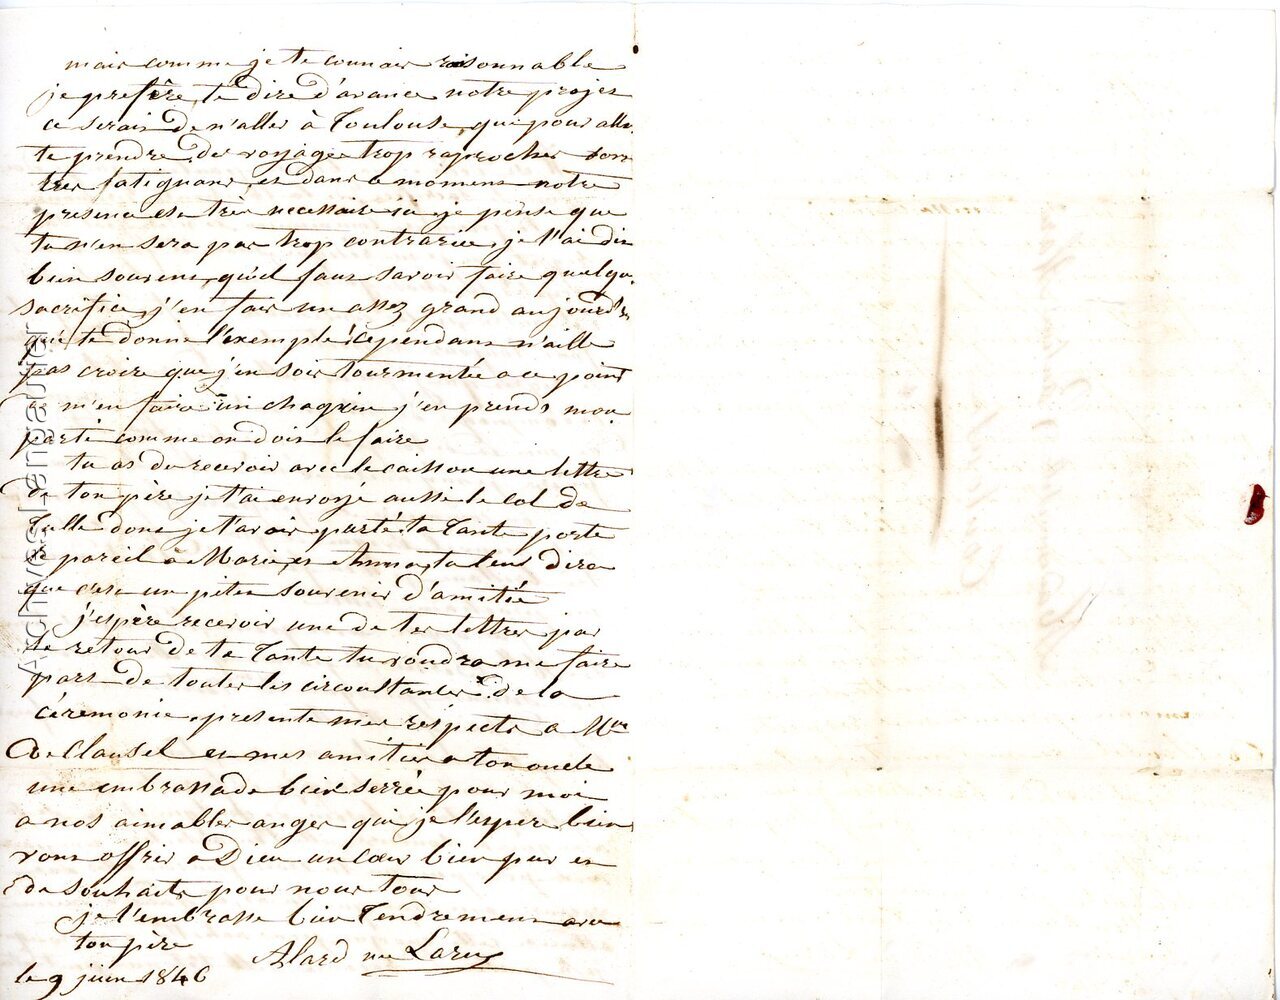 mais comme je te connais raisonnable
je préfère te dire d'avance notre projet
ce serais de n'aller à Toulouse que pour aller
te prendre des voyages trop raprocher sont
tres fatiguant, et dans ce moment notre
presence est très necessaire ici, je pense que
tu n'en sera pas trop contrariée, je t'ai dit
bien souvent qu'il faut savoir faire quelque
sacrifice, j'en fait un assez grand aujourd'h
qui te donne l'exemple, cependant n'aille
pas croire que j'en sois tourmentée a ce point
m'en faire un chagrin j'en prends mon
parti comme on dois le faire
tu as du recevoir avec le caisson une lettre
de ton père, je t'ai envoyé aussi le col de
Tulle dont je t'avois parté ta Tante porte
le pareil à Maria et Anna, ta leur dira
que c'est un petit souvenir d'amitié
j'espère recevoir une de tes lettres par
le retour de ta Tante tu voudra me faire
part de toutes les circonstances de la
céremonie, presente mes respects a Mme
De Clausel et mes amities a ton oncle
une embrassade bien serrée pour moi
a nos aimables anges qui je l'espere bien
vont offrir a Dieu un cœur bien pur et
de souhaits pour nous tous
je t'embrasse bien Tendrement avec
ton père
Alard née Larey
le 9 juin 1846
Archives Lengautier